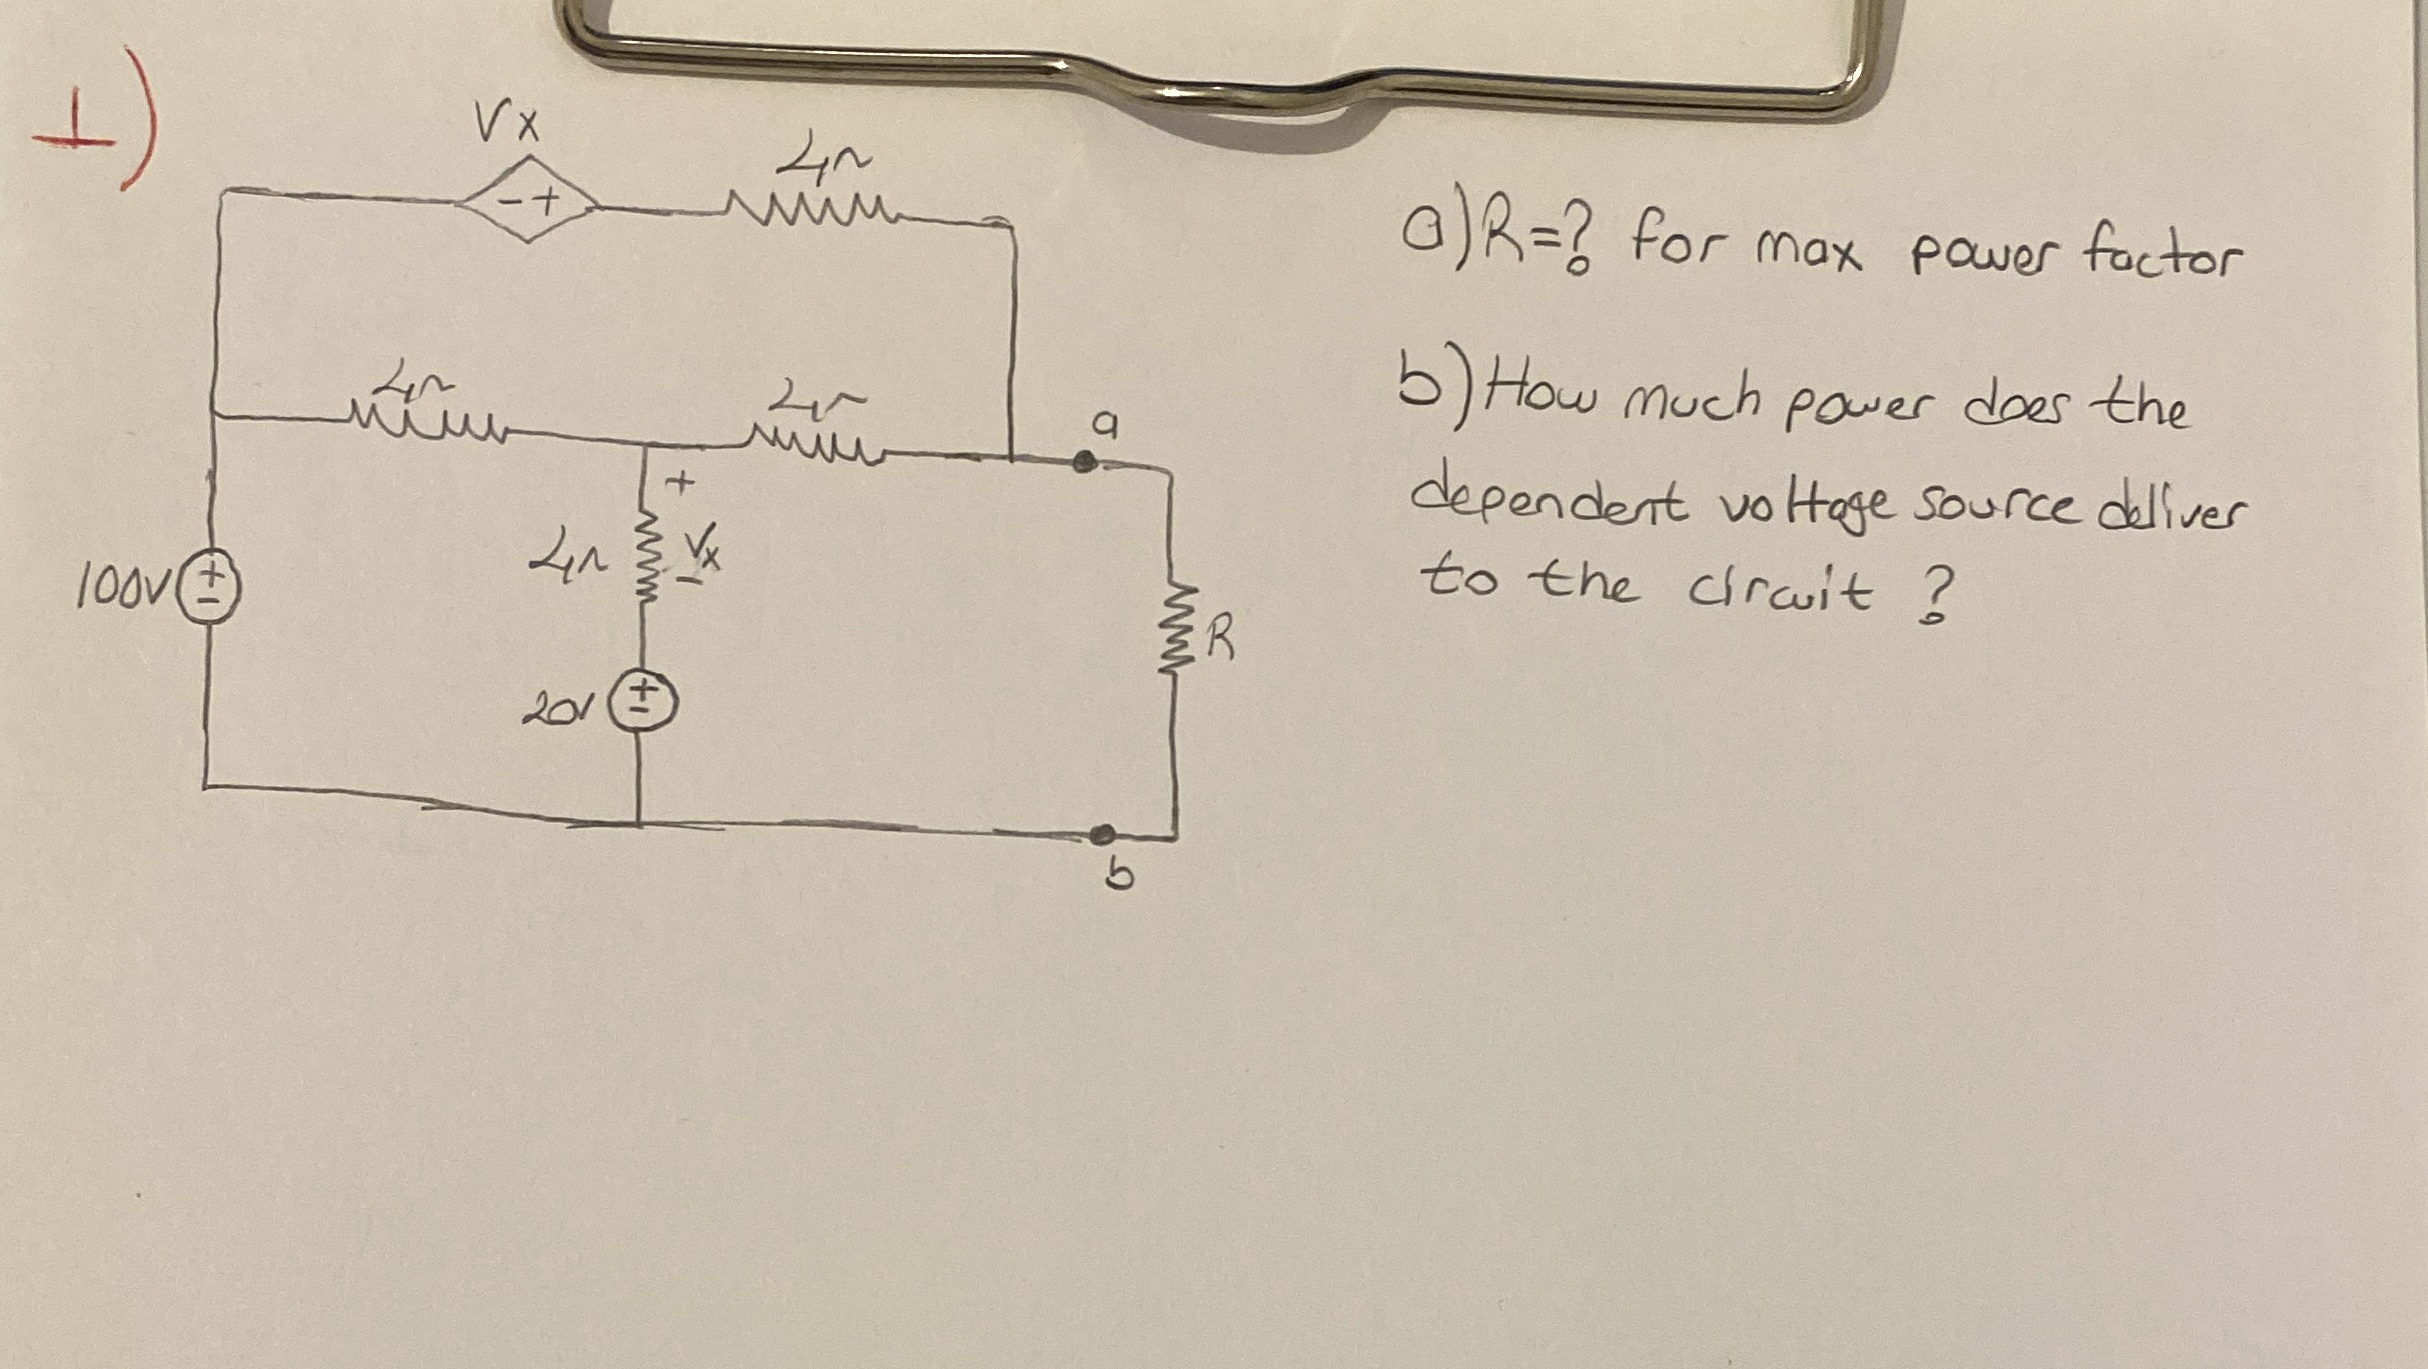 1)
Vx
- +
4Ω
4Ω
4Ω
a
+
4Ω
Vx
-
100V
+
-
R
20V
+
-
b
a) R=? for max power factor
b) How much power does the
dependent voltage source deliver
to the circuit ?